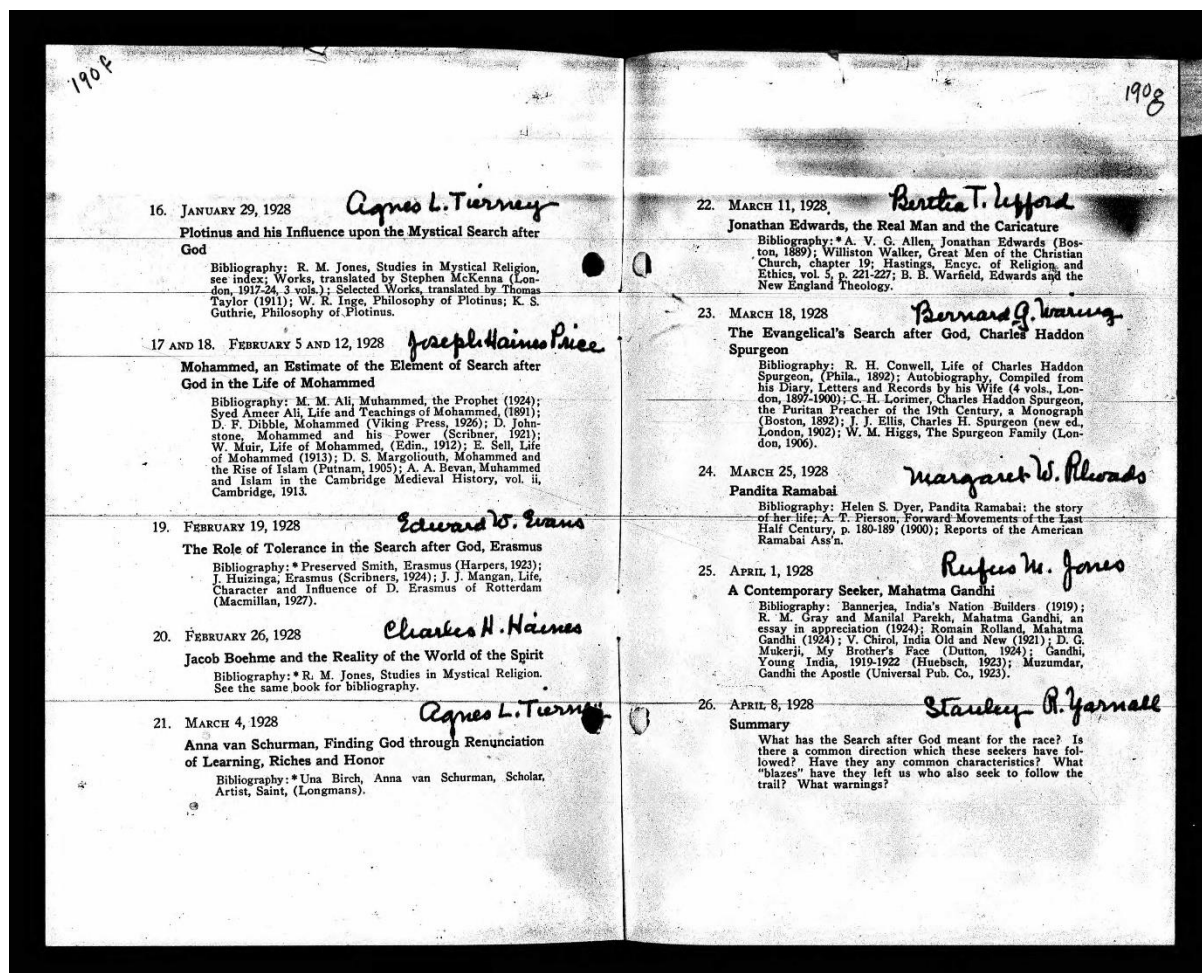 190f
16. JANUARY 29, 1928 Agnes L. Tierney
Plotinus and his Influence upon the Mystical Search after
God
Bibliography: R. M. Jones, Studies in Mystical Religion,
see index; Works, translated by Stephen McKenna (Lon-
don, 1917-24, 3 vols.); Selected Works, translated by Thomas
Taylor (1911); W. R. Inge, Philosophy of Plotinus; K. S.
Guthrie, Philosophy of Plotinus.
17 AND 18. FEBRUARY 5 AND 12, 1928 Joseph Haines Price
Mohammed, an Estimate of the Element of Search after
God in the Life of Mohammed
Bibliography: M. M. Ali, Muhammed, the Prophet (1924);
Syed Ameer Ali, Life and Teachings of Mohammed, (1891);
D. F. Dibble, Mohammed (Viking Press, 1926); D. John-
stone, Mohammed and his Power (Scribner, 1921);
W. Muir, Life of Mohammed, (Edin., 1912); E. Sell, Life
of Mohammed (1913); D. S. Margoliouth, Mohammed and
the Rise of Islam (Putnam, 1905); A. A. Bevan, Muhammed
and Islam in the Cambridge Medieval History, vol. ii,
Cambridge, 1913.
19. FEBRUARY 19, 1928 Edward W. Evans
The Role of Tolerance in the Search after God, Erasmus
Bibliography: * Preserved Smith, Erasmus (Harpers, 1923);
J. Huizinga, Erasmus (Scribners, 1924); J. J. Mangan, Life,
Character and Influence of D. Erasmus of Rotterdam
(Macmillan, 1927).
20. FEBRUARY 26, 1928 Charles H. Haines
Jacob Boehme and the Reality of the World of the Spirit
Bibliography: * R. M. Jones, Studies in Mystical Religion.
See the same book for bibliography.
21. MARCH 4, 1928 Agnes L. Tierney
Anna van Schurman, Finding God through Renunciation
of Learning, Riches and Honor
Bibliography: * Una Birch, Anna van Schurman, Scholar,
Artist, Saint, (Longmans).
190g
22. MARCH 11, 1928 Bertha T.
Jonathan Edwards, the Real Man and the Caricature
Bibliography: * A. V. G. Allen, Jonathan Edwards (Bos-
ton, 1889); Williston Walker, Great Men of the Christian
Church, chapter 19; Hastings, Encyc. of Religion and
Ethics, vol. 5, p. 221-227; B. B. Warfield, Edwards and the
New England Theology.
23. MARCH 18, 1928 Bernard G. Waring
The Evangelical's Search after God, Charles Haddon
Spurgeon
Bibliography: R. H. Conwell, Life of Charles Haddon
Spurgeon, (Phila., 1892); Autobiography, Compiled from
his Diary, Letters and Records by his Wife (4 vols., Lon-
don, 1897-1900); C. H. Lorimer, Charles Haddon Spurgeon,
the Puritan Preacher of the 19th Century, a Monograph
(Boston, 1892); J. J. Ellis, Charles H. Spurgeon (new ed.,
London, 1902); W. M. Higgs, The Spurgeon Family (Lon-
don, 1906).
24. MARCH 25, 1928 Margaret W. Rhoads
Pandita Ramabai
Bibliography: Helen S. Dyer, Pandita Ramabai: the story
of her life; A. T. Pierson, Forward Movements of the Last
Half Century, p. 180-189 (1900); Reports of the American
Ramabai Ass'n.
25. APRIL 1, 1928 Rufus M. Jones
A Contemporary Seeker, Mahatma Gandhi
Bibliography: Bannerjea, India's Nation Builders (1919);
R. M. Gray and Manilal Parekh, Mahatma Gandhi, an
essay in appreciation (1924); Romain Rolland, Mahatma
Gandhi (1924); V. Chirol, India Old and New (1921); D. G.
Mukerji, My Brother's Face (Dutton, 1924); Gandhi,
Young India, 1919-1922 (Huebsch, 1923); Muzumdar,
Gandhi the Apostle (Universal Pub. Co., 1923).
26. APRIL 8, 1928 Stanley R. Yarnall
Summary
What has the Search after God meant for the race? Is
there a common direction which these seekers have fol-
lowed? Have they any common characteristics? What
"blazes" have they left us who also seek to follow the
trail? What warnings?